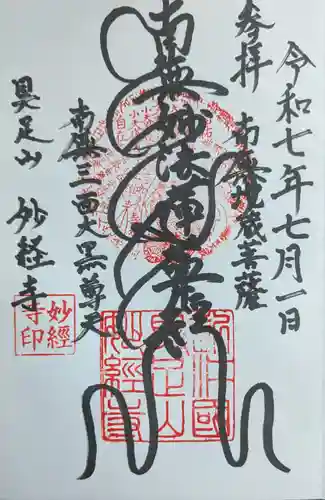 令和七年七月一日
参拝
南無地蔵菩薩
南無妙法蓮華経
南無三面大黒尊天
具足山 妙経寺
妙經
寺印
具足山
妙經寺